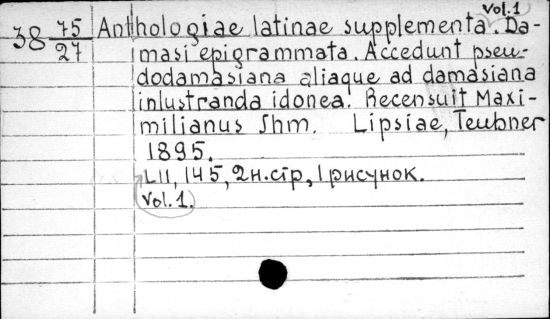 Vol.1
38 75/27 Anthologiae latinae supplementa. Da-
masi epigrammata. Accedunt pseu-
dodamasiana aliaque ad damasiana
inlustranda idonea. Recensuit Maxi-
milianus Ihm. Lipsiae, Teubner
1895.
LII, 145, 2н.стр, 1 рисунок.
Vol. 1.